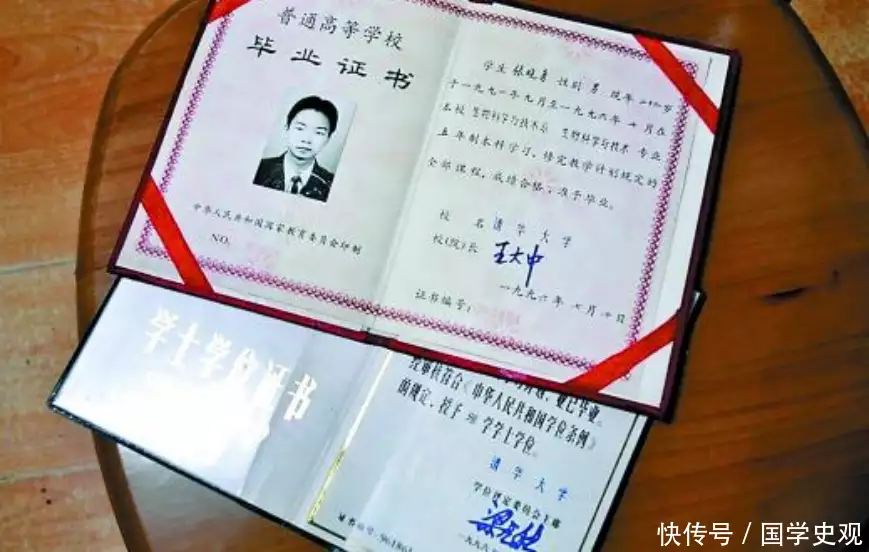 普通高等学校
毕业证书
中华人民共和国国家教育委员会印制
NO.
学生 张晓勇 性别 男 现年 二十三岁
于一九九一年九月至一九九六年七月在
本校 生物科学与技术系 生物科学与技术 专业
五年制本科学习,修完教学计划规定的
全部课程,成绩合格,准予毕业。
校 名 清华大学
校(院)长 王大中
一九九六年 七月 十日
证书编号:
学士学位证书
业已毕业。
经审核符合《中华人民共和国学位条例》
的规定,授予 理 学学士学位。
清华大学
学位评定委员会主席
一九九六年
证书编号:
快传号 / 国学史观